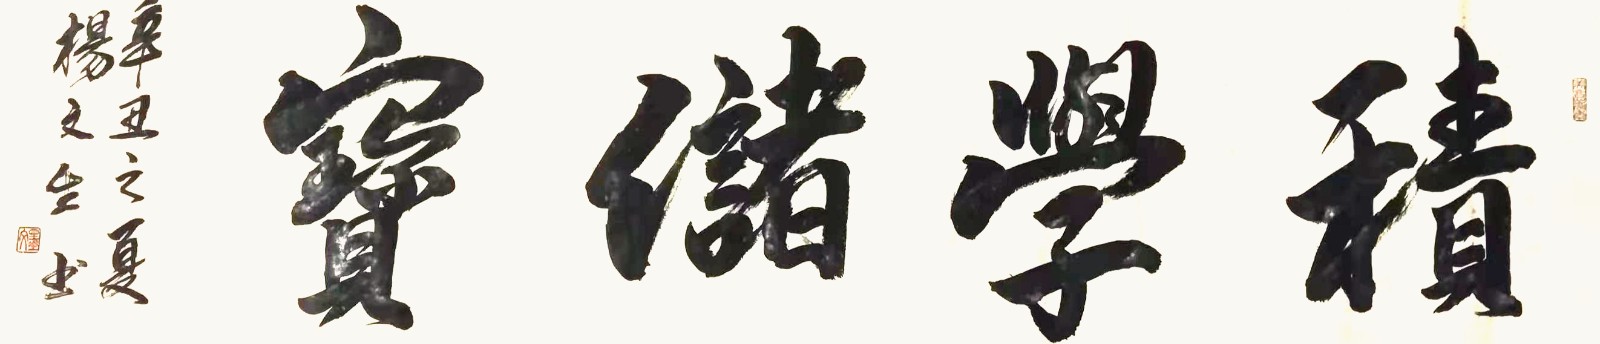 積學儲寶
辛丑之夏
楊文生书